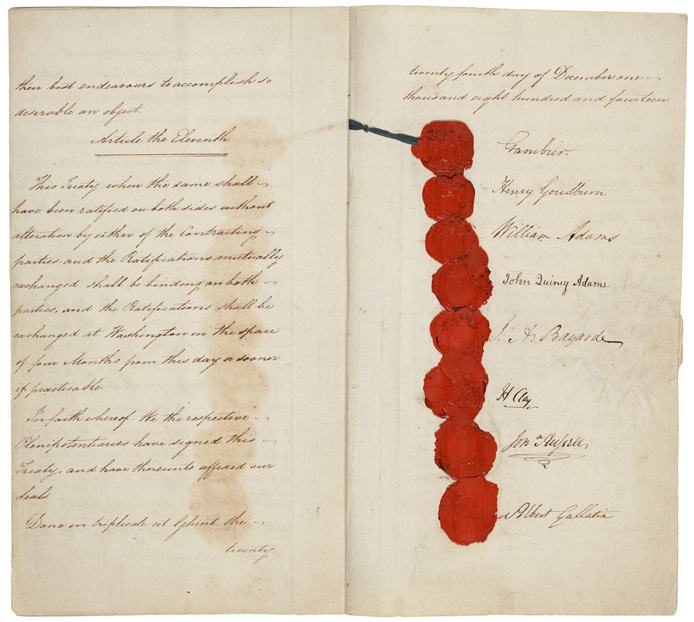 their best endeavours to accomplish so
desirable an object.
Article the Eleventh
This Treaty when the same shall
have been ratified on both sides without
alteration by either of the contracting
parties, and the Ratifications mutually
exchanged shall be binding on both
parties, and the Ratifications shall be
exchanged at Washington in the space
of four Months from this day or sooner
if practicable.
In faith whereof We the respective
Plenipotentiaries have signed this
Treaty, and have thereunto affixed our
Seals
Done in triplicate at Ghent the
twenty
twenty fourth day of December one
thousand eight hundred and fourteen.
Gambier.
Henry Goulburn
William Adams
John Quincy Adams.
J. A. Bayard
H Clay
Jona Russell,
Albert Gallatin